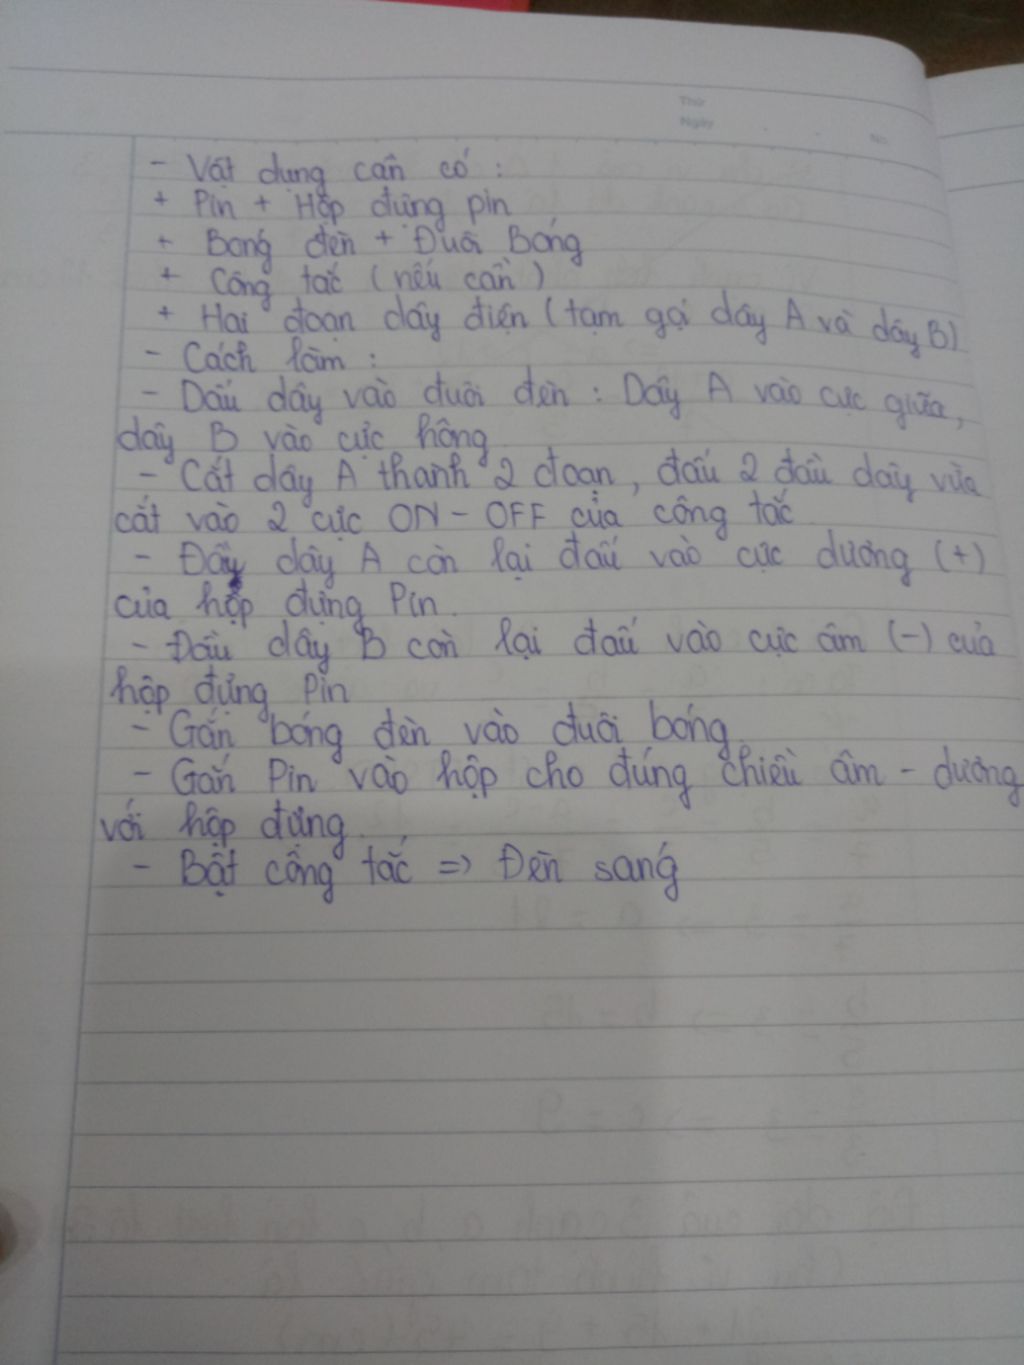 Thứ
Ngày
No.
- Vật dụng cần có :
+ Pin + Hộp đựng pin
+ Bóng đèn + Đuôi Bóng
+ Công tắc (nếu cần)
+ Hai đoạn dây điện (tạm gọi dây A và dây B)
- Cách làm :
- Dấu dây vào đuôi đèn : Dây A vào cực giữa,
dây B vào cực hông
- Cắt dây A thanh 2 đoạn, đấu 2 đầu dây vừa
cắt vào 2 cực ON - OFF của công tắc
- Đầu dây A còn lại đấu vào cực dương (+)
của hộp đựng Pin.
- Đầu dây B còn lại đấu vào cực âm (-) của
hộp đựng Pin
- Gắn bóng đèn vào đuôi bóng.
- Gắn Pin vào hộp cho đúng chiều âm - dương
với hộp đựng.
- Bật công tắc => Đèn sáng